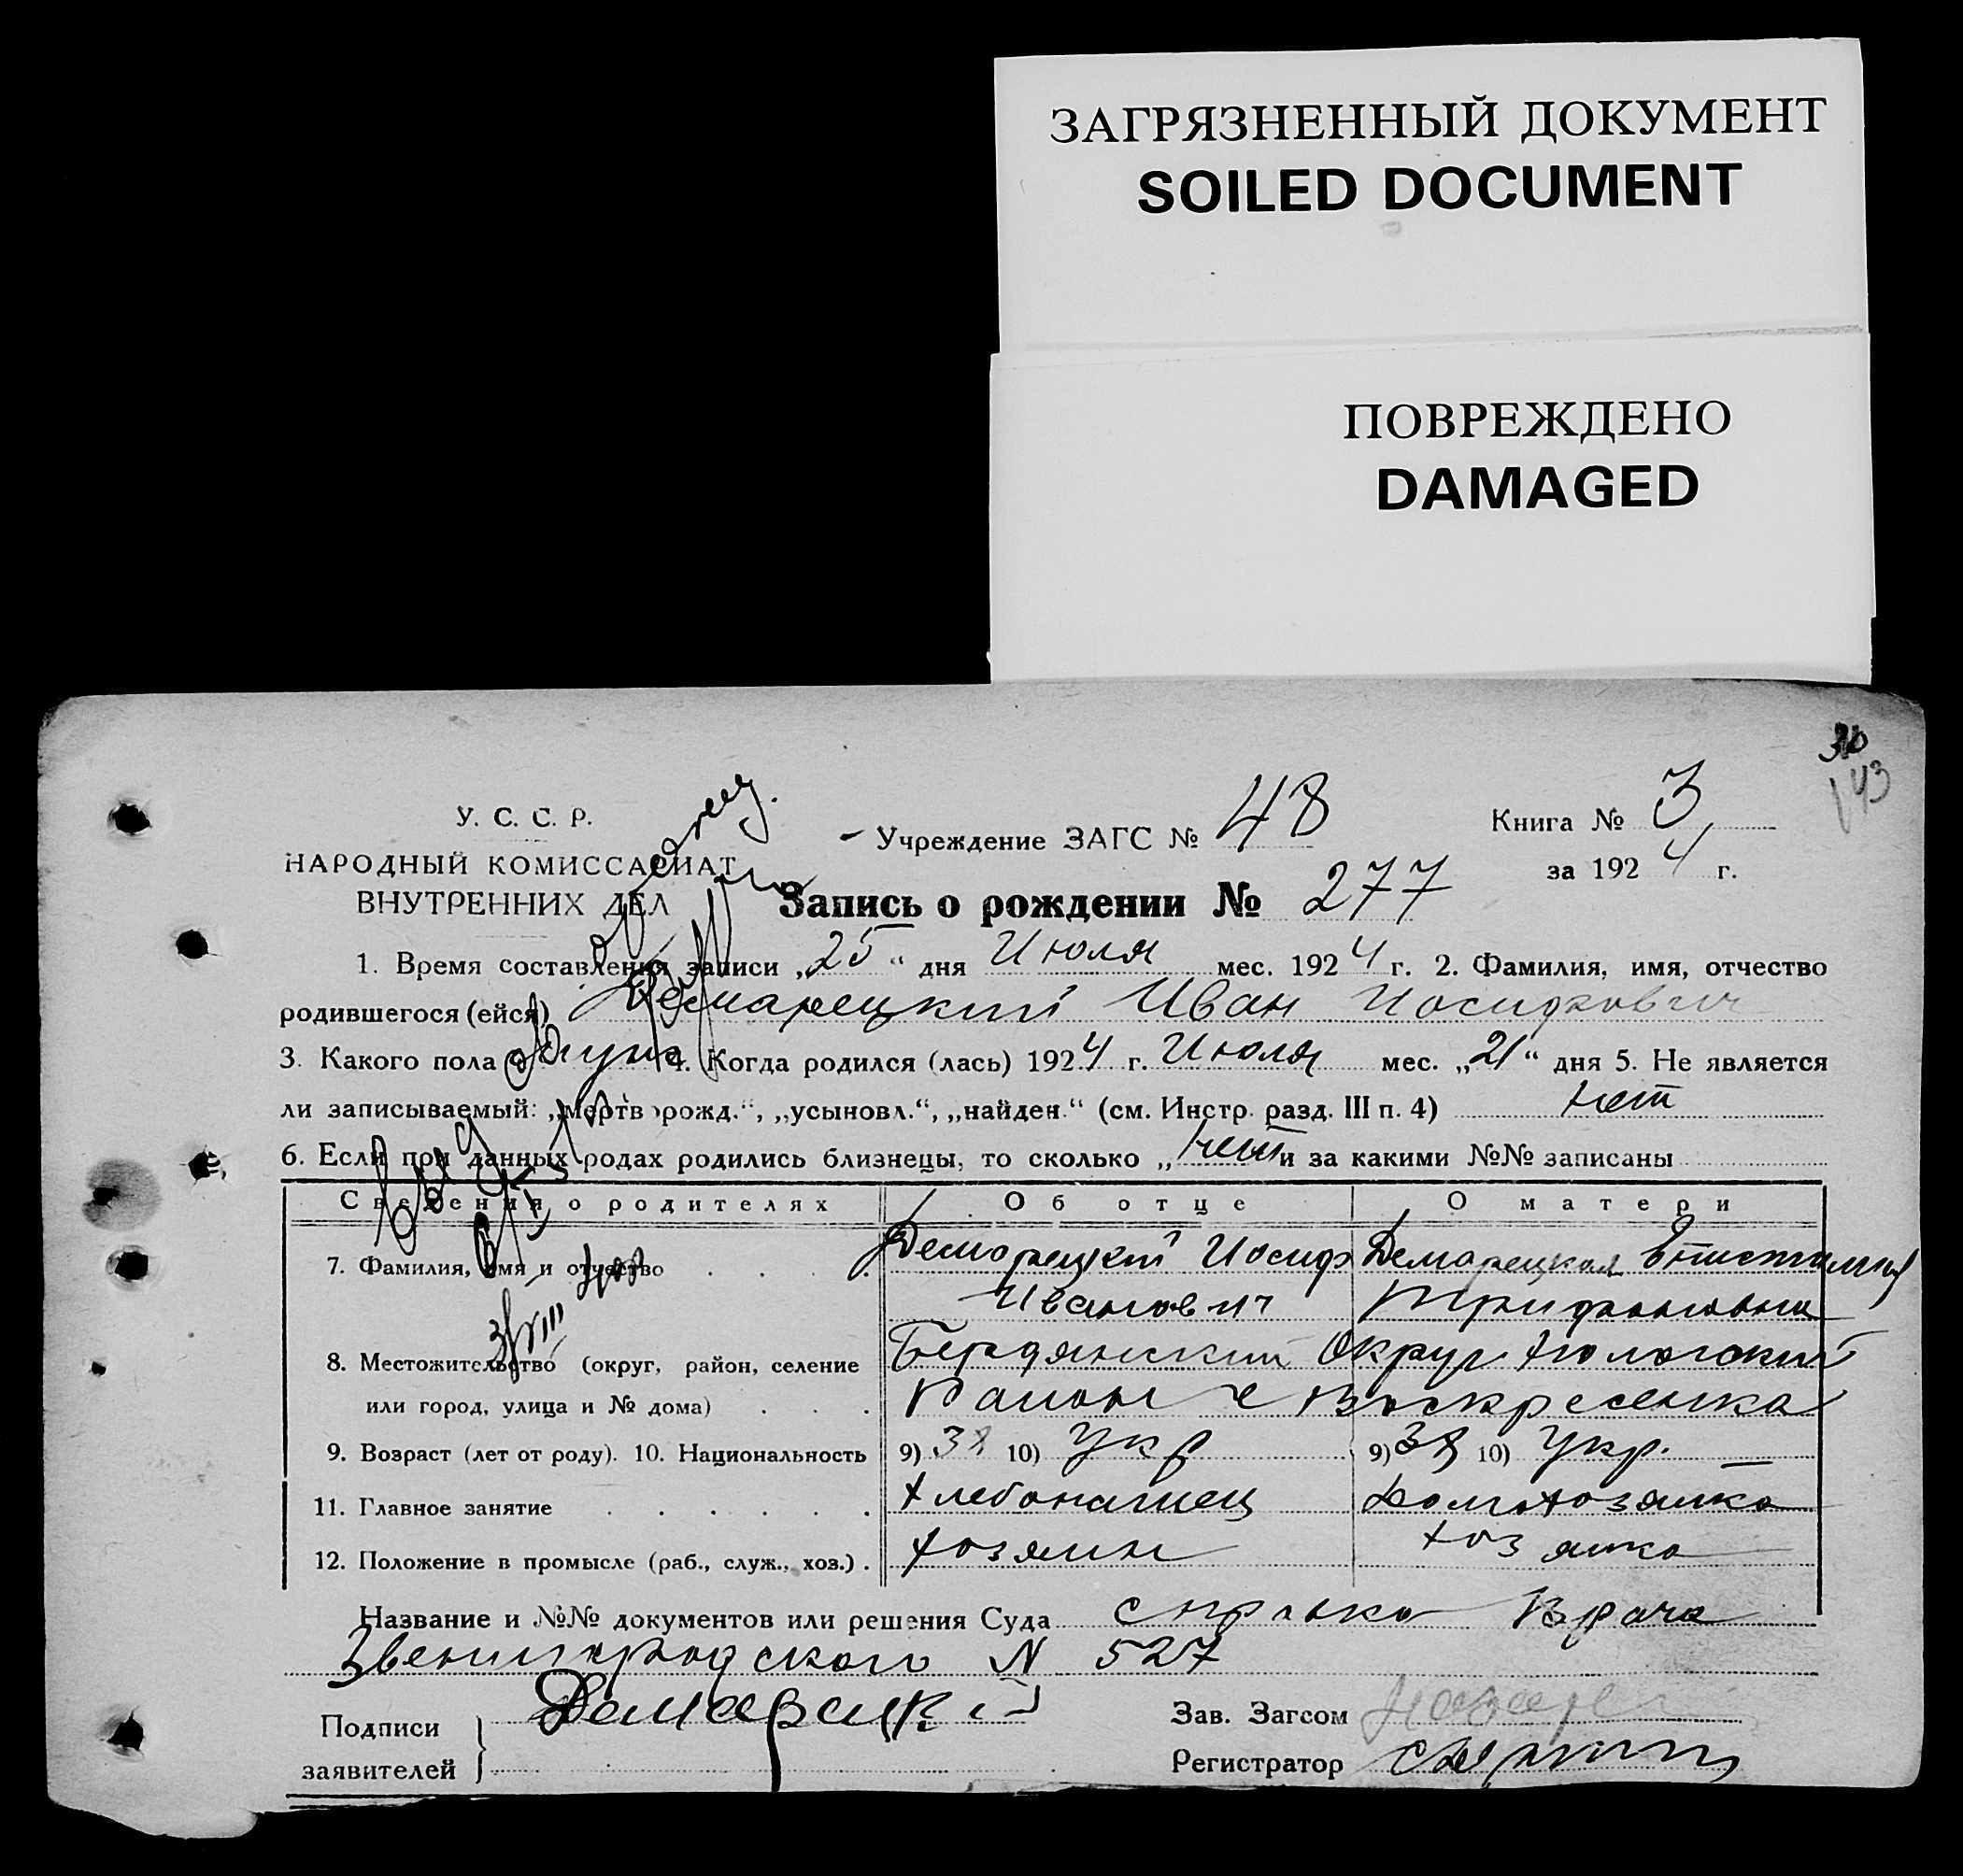 ЗАГРЯЗНЕННЫЙ ДОКУМЕНТ
SOILED DOCUMENT
ПОВРЕЖДЕНО
DAMAGED
У. С. С. Р.
НАРОДНЫЙ КОМИССАРИАТ
ВНУТРЕННИХ ДЕЛ
Учреждение ЗАГС № 48
Книга № 3
за 1924 г.
Запись о рождении № 277
1. Время составления записи „25“ дня Июля мес. 1924 г. 2. Фамилия, имя, отчество
родившегося (ейся) Демарецкий Иван Иосифович
3. Какого пола муж 4. Когда родился (лась) 1924 г. Июля мес. „21“ дня 5. Не является
ли записываемый: „мертворожд.“, „усыновл.“, „найден.“ (см. Инстр. разд. III п. 4) нет
6. Если при данных родах родились близнецы, то сколько „нет и за какими №№ записаны
Сведения о родителях Об отце О матери
7. Фамилия, имя и отчество Демарецкий Иосиф Демарецкая
Иванович Трифоновна
8. Местожительство (округ, район, селение Бердянский Округ
или город, улица и № дома) Район с Воскресенка
9. Возраст (лет от роду). 10. Национальность 9) 38 10) Укр 9) 38 10) Укр.
11. Главное занятие Хлебопашец Домохозяйка
12. Положение в промысле (раб., служ., хоз.) хозяин хозяйка
Название и №№ документов или решения Суда справка Врача
Звенигородского N 527
Подписи заявителей Демарецкий
Зав. Загсом
Регистратор